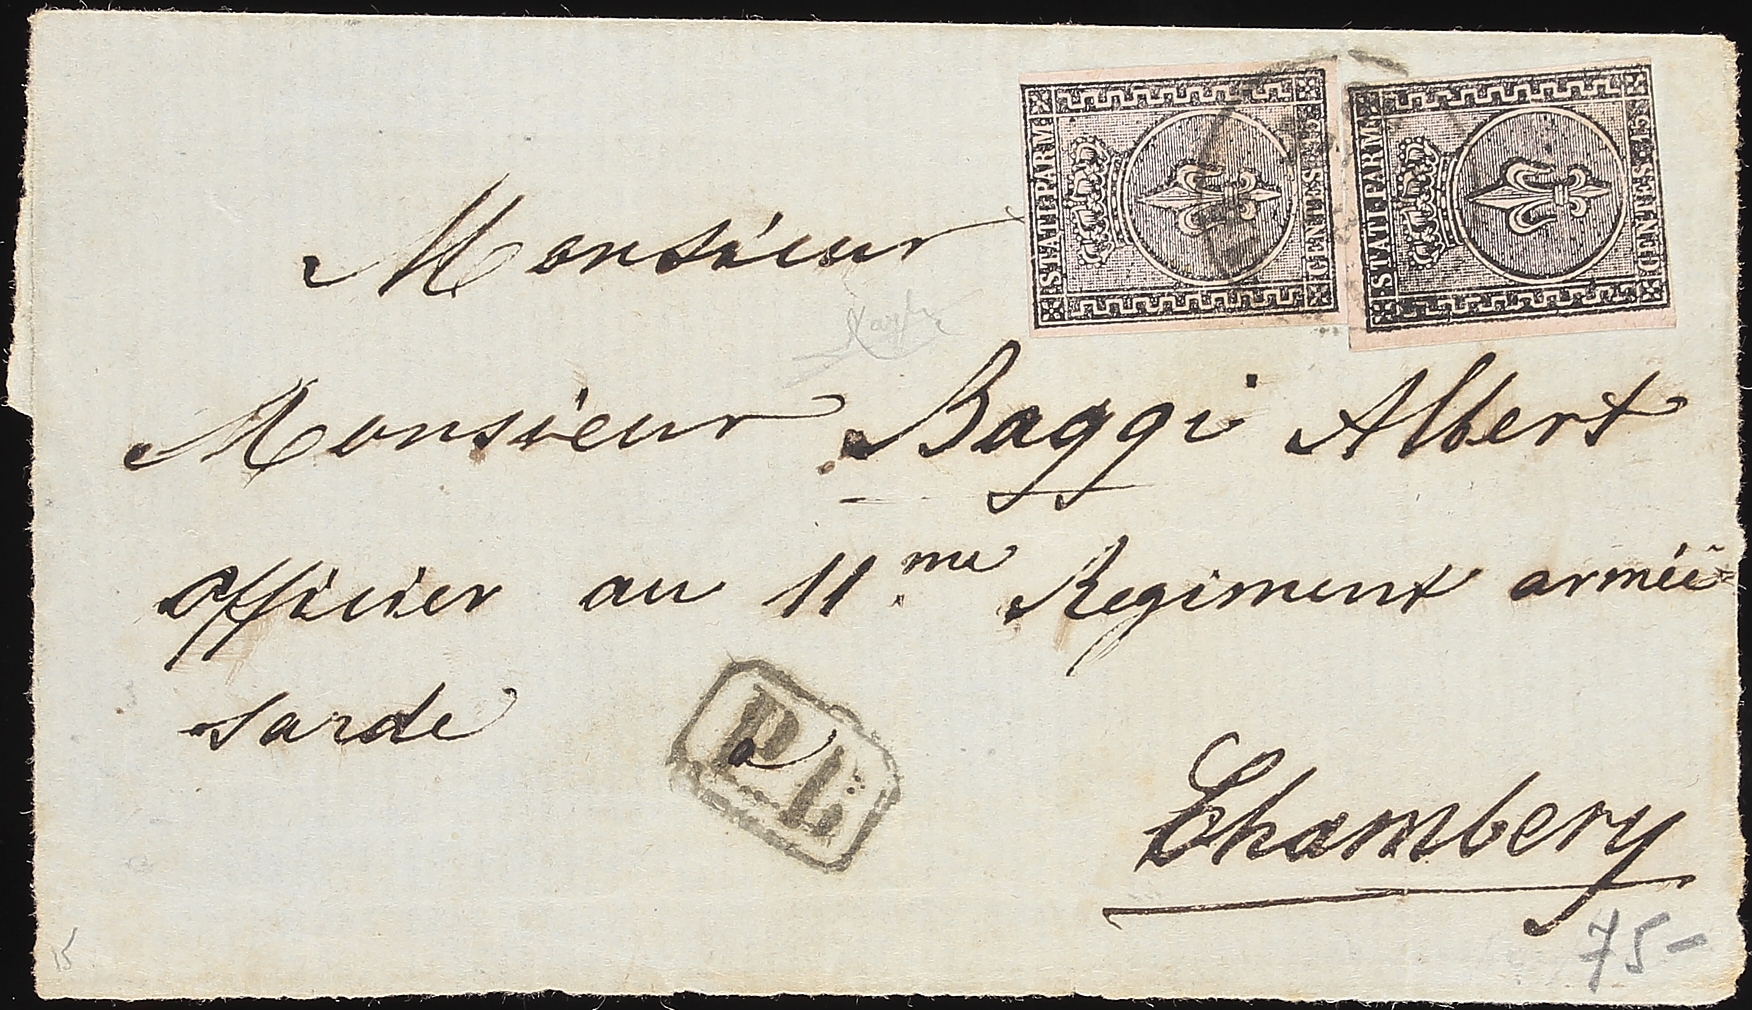 STATI PARM.
CENTES. 15
STATI PARM.
CENTES. 15
Monsieur
Monsieur Baggi Albert
officier au 11.me Regiment armèe
sarde a
P.L.
Chambery
75-
15